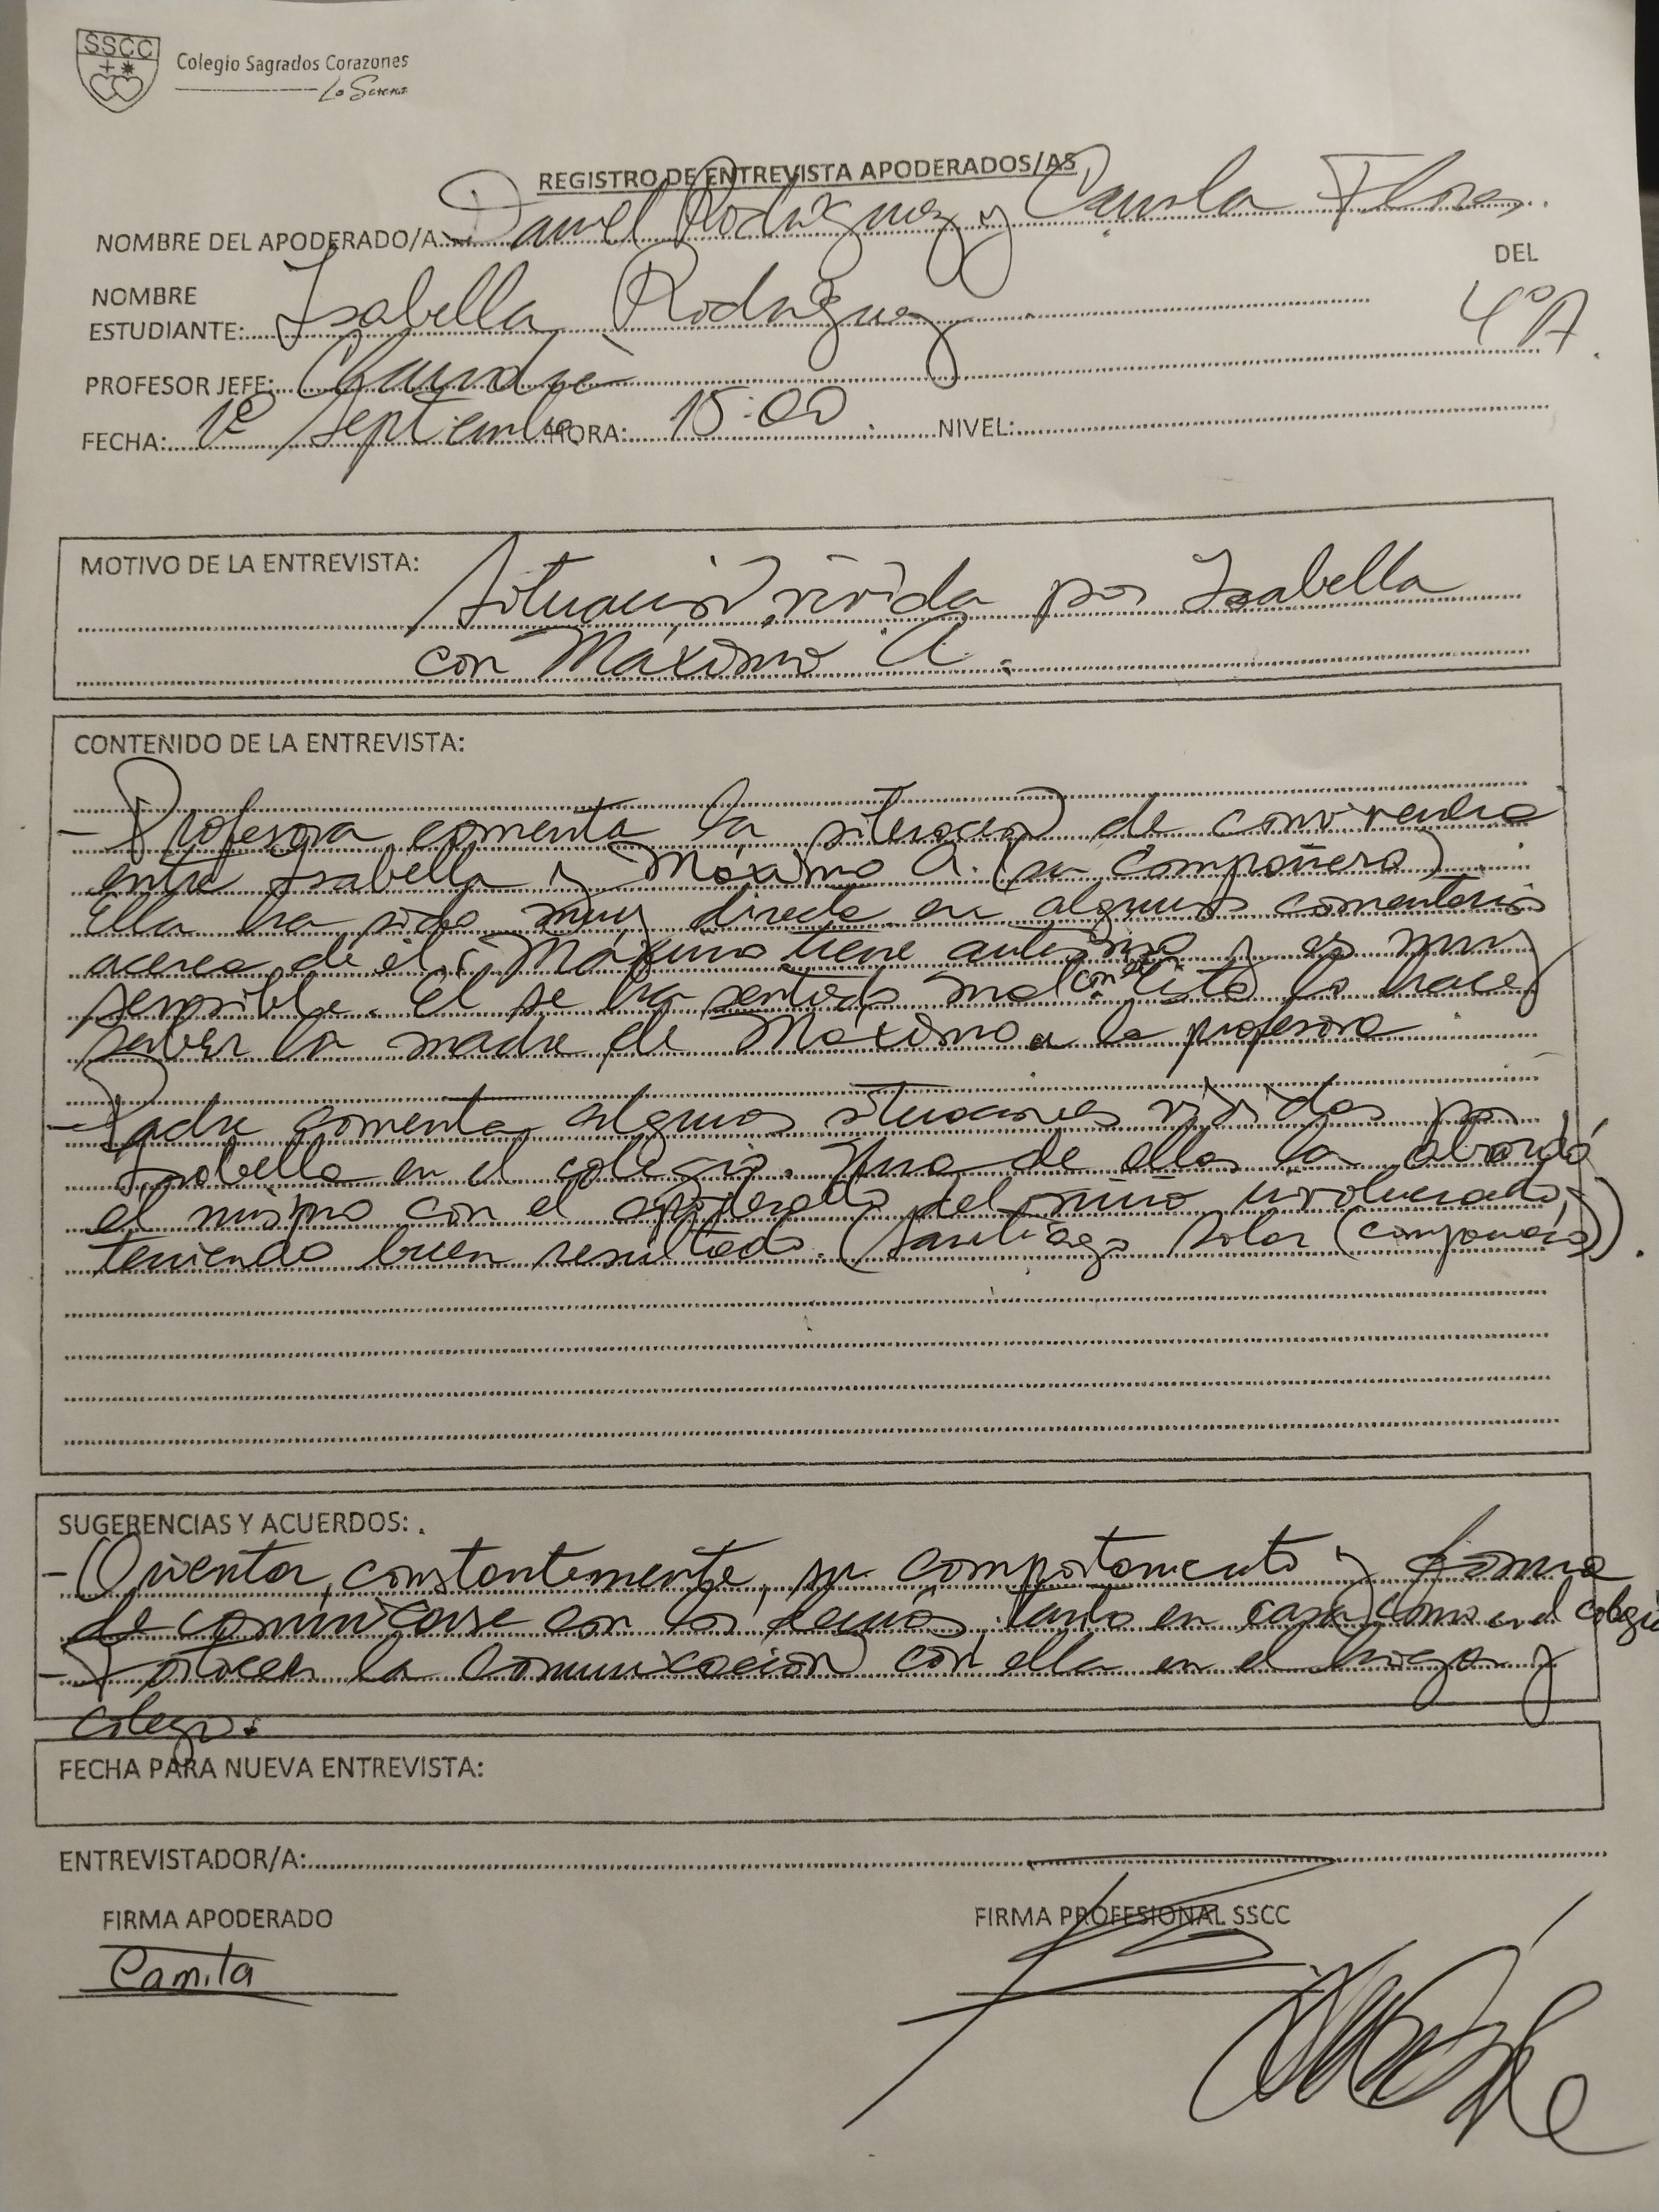 SSCC
Colegio Sagrados Corazones
La Serena
REGISTRO DE ENTREVISTA APODERADOS/AS
NOMBRE DEL APODERADO/A: Daniel Rodríguez y Camila Flores.
DEL
NOMBRE
ESTUDIANTE: Isabella Rodríguez 4°A
PROFESOR JEFE: Claudia
FECHA: 1° Septiembre HORA: 15:00 NIVEL:
MOTIVO DE LA ENTREVISTA: Situación vivida por Isabella
con Máximo A.
CONTENIDO DE LA ENTREVISTA:
- Profesora comenta la situación de convivencia
entre Isabella y Máximo A. (su compañero).
Ella ha sido muy directa en algunos comentarios
acerca de él. Máximo tiene autismo y es muy
sensible. El se ha sentido mal con esto lo hace
saber la madre de Máximo a la profesora.
- Padre comenta algunas situaciones vividas por
Isabella en el colegio. Una de ellas la abordó
el mismo con el apoderado del niño involucrado,
teniendo buen resultado. (Santiago Solar (compañero)).
SUGERENCIAS Y ACUERDOS:
- Orientar, constantemente, su comportamiento y forma
de comunicarse con los demás, tanto en casa como en el colegio
- Fortalecer la comunicación con ella en el hogar y
colegio.
FECHA PARA NUEVA ENTREVISTA:
ENTREVISTADOR/A:
FIRMA APODERADO FIRMA PROFESIONAL SSCC
Camita